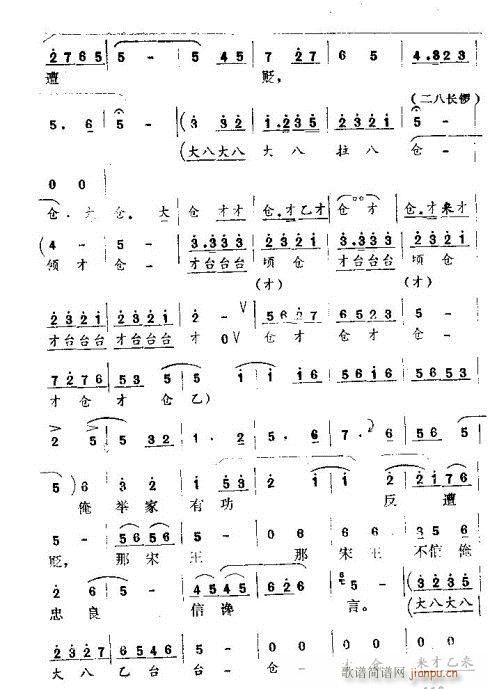 2 7 6 5 | 5 - | 5 4 5 | 7 2 7 | 6 5 | 4 . 3 2 3
遭 贬，
（二八长锣）
5 . 6 | 5 - | ( 3 3 2 | 1 . 2 3 5 | 2 3 2 1 | 5 -
(大八大八 大八 拉八 仓 -
0 0
仓 . 才 仓 . 大 仓 才才 仓 . 才乙才 仓 才 仓 . 才来才
( 4 - | 5 - | 3 . 3 3 3 | 2 3 2 1 | 3 . 3 3 3 | 2 3 2 1
倾才 仓 - 才台台台 顷仓 才台台台 顷仓
(才) (才)
2 3 2 1 | 2 3 2 1 | 2 - V | 5 6 2 7 | 6 5 2 5 | 6 -
才台台台 才台台台 才 0 V 仓 才 仓 才 仓 -
7 2 7 6 | 5 3 5 | 1 1 | 6 5 6 1 | 5 6 1 6
才 仓 才 仓 乙)
2 5 | 5 3 2 | 1 . 2 | 5 . 6 | 7 . 6 | 5 6 5
5 ) 6 | 3 2 | 1 5 3 | 2 1 | 1 2 | 2 1 7 6
俺 举 家 有 功 反 遭
5 - | 5 6 5 6 | 5 - | 5 - | 6 3 | 5 5 6
贬， 那 宋 王 那 宋 王 不信 俺
2 6 | 5 - | 4 5 4 5 | 6 2 6 | 5 - | ( 3 2 3 5
忠 良 信 谗 言。 (大八大八
2 3 2 7 | 6 5 4 6 | 5 - | 0 0 | 0 0
大 八 乙 台 台 仓 - 仓 来才乙来
歌谱简谱网
jianpu.cn